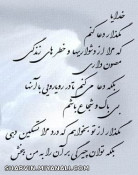 خدایا
مگذار دعا کنم
که مرا از دشواریها و خطرهای زندگی
مصون داری
بلکه دعا می کنم تا در رویارویی با آنها
بی باک و شجاع باشم
مگذار از تو بخواهم که درد مرا تسکین دهی
بلکه توان چیرگی بر آن را به من ببخش
WWW.SHARVIN.MIYANALI.COM